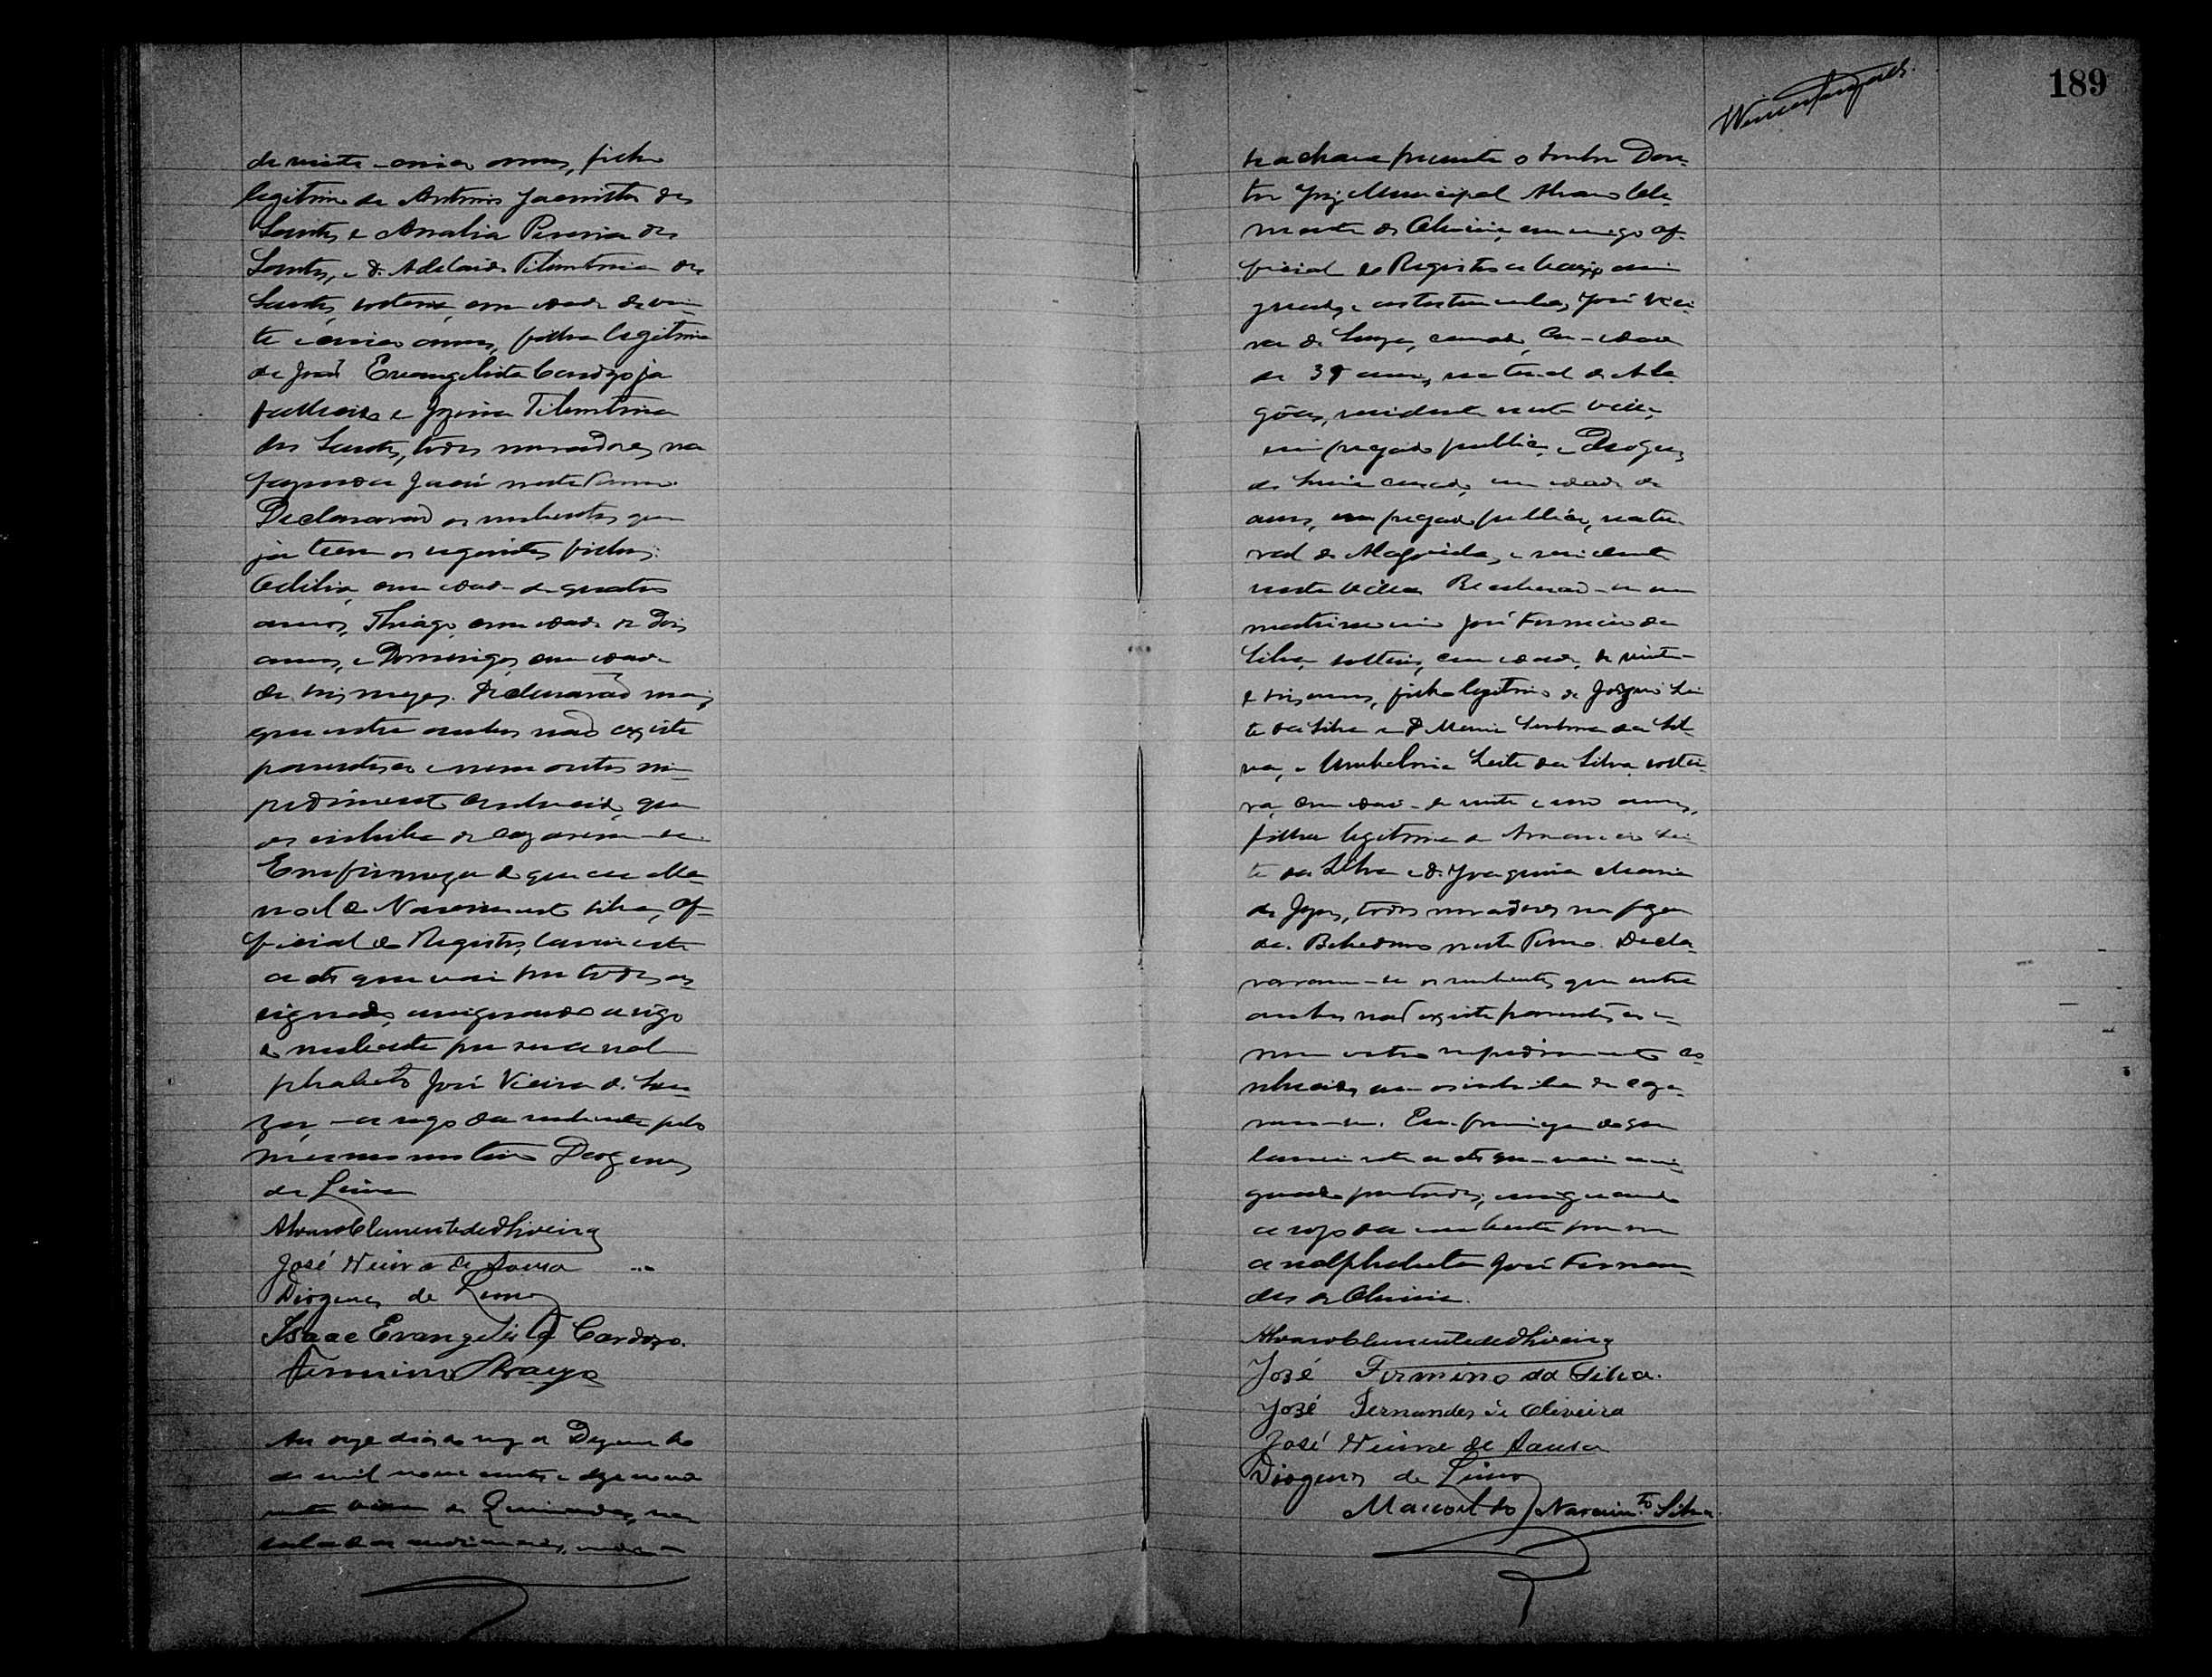 de vinte e cinco annos, filho
legitimo de Antonio Jacintho dos
Santos e Analia Pereira dos
Santos, e D. Adelaide Tiburtina dos
Santos, solteira, com idade de vin-
te e cinco annos, filha legitima
de João Evangelista Cardozo já
fallecido e Tiburtina
dos Santos, todos moradores na
fazenda neste Termo.
Declararão os nubentes que
já teem os seguintes filhos:
Odilia, com idade de quatro
annos, Thiago, com idade de dois
annos, e Domingos, com idade
de tres mezes. Declararão mais
que entre ambos não existe
parentesco e nem outro im-
pedimento conhecido que
os inhiba de cazarem-se.
Em firmeza do que eu Ma-
noel do Nascimento Silva, Of-
ficial do Registro, lavrei este
acto que vai por todos as-
signado, assignando a rogo
do nubente por ser anal-
phabeto José Vieira de Sou-
za, e a rogo da nubente pelo
mesmo motivo Diogenes
de Lima
Alvaro Clemente de Oliveira
José Vieira de Sousa
Diogenes de Lima
Isaac Evangelista Cardozo.
Firmino Araujo
Aos onze dias do mez de Dezembro
de mil nove centos e dezenove
nesta Villa de Queimadas, na
sala das audiencias, onde
189
se achava presente o Senhor Dou-
tor Juiz Municipal Alvaro Cle-
mente de Oliveira, commigo Of-
ficial do Registro abaixo assi-
gnado, e as testemunhas, José Viei-
ra de Souza, casado, com idade
de annos, natural de Ala-
gôas, residente nesta Villa,
empregado publico, e Diogenes
de Lima casado, com idade de
annos, empregado publico, natu-
ral de e residente
nesta Villa. Receberão-se em
matrimonio José Firmino da
Silva, solteiro, com idade de vinte
e tres annos, filho legitimo de Lei-
te da Silva e D. Maria da Sil-
va, e Umbelina Leite da Silva, soltei-
ra, com idade de vinte e um annos,
filha legitima de Amancio Lei-
te da Silva e D. Joaquina Maria
de Jezus, todos moradores na fazen-
da neste Termo. Decla-
raram-se os nubentes que entre
ambos não existe parentesco e
nem outro impedimento co-
nhecido que os inhiba de caza-
rem-se. Em firmeza do que
lavrei este acto que vai assi-
gnado por todos, assignando
a rogo da nubente por ser
analphabeta José Fernan-
des de Oliveira.
Alvaro Clemente de Oliveira
José Firmino da Silva.
José Fernandes de Oliveira
José Vieira de Sousa
Diogenes de Lima
Manoel do Nascimto Silva